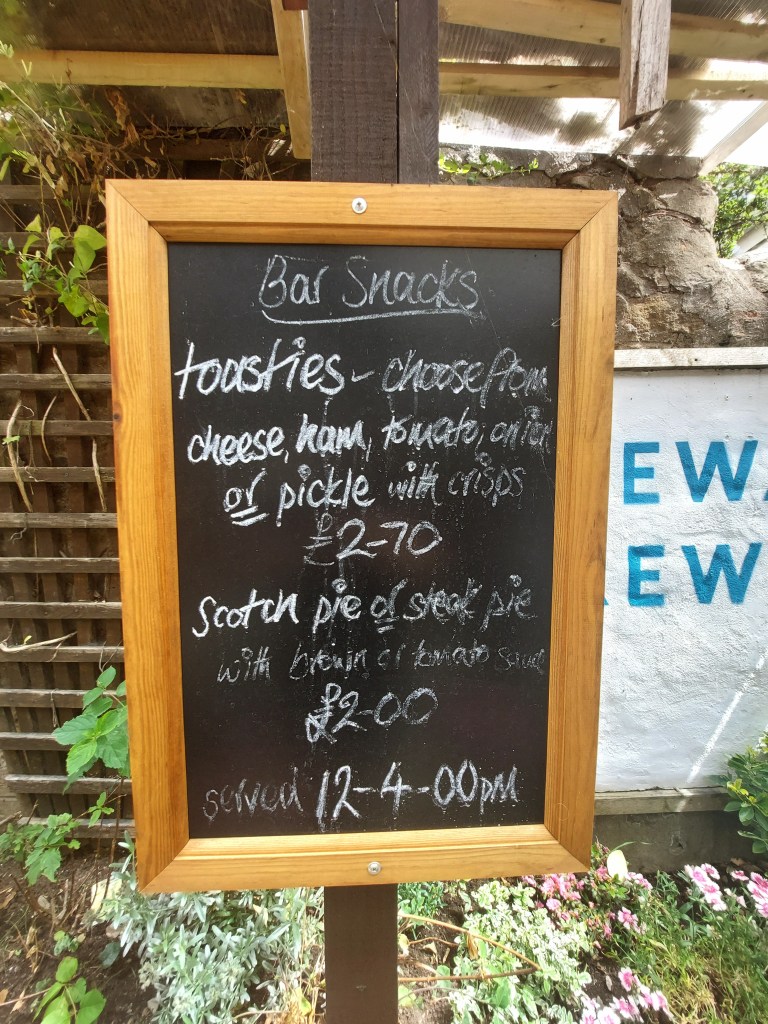 Bar Snacks
toasties - choose from
cheese, ham, tomato, onion
or pickle with crisps
£2-70
Scotch pie or steak pie
with brown or tomato sauce
£2-00
served 12-4-00pm
EWA
REW